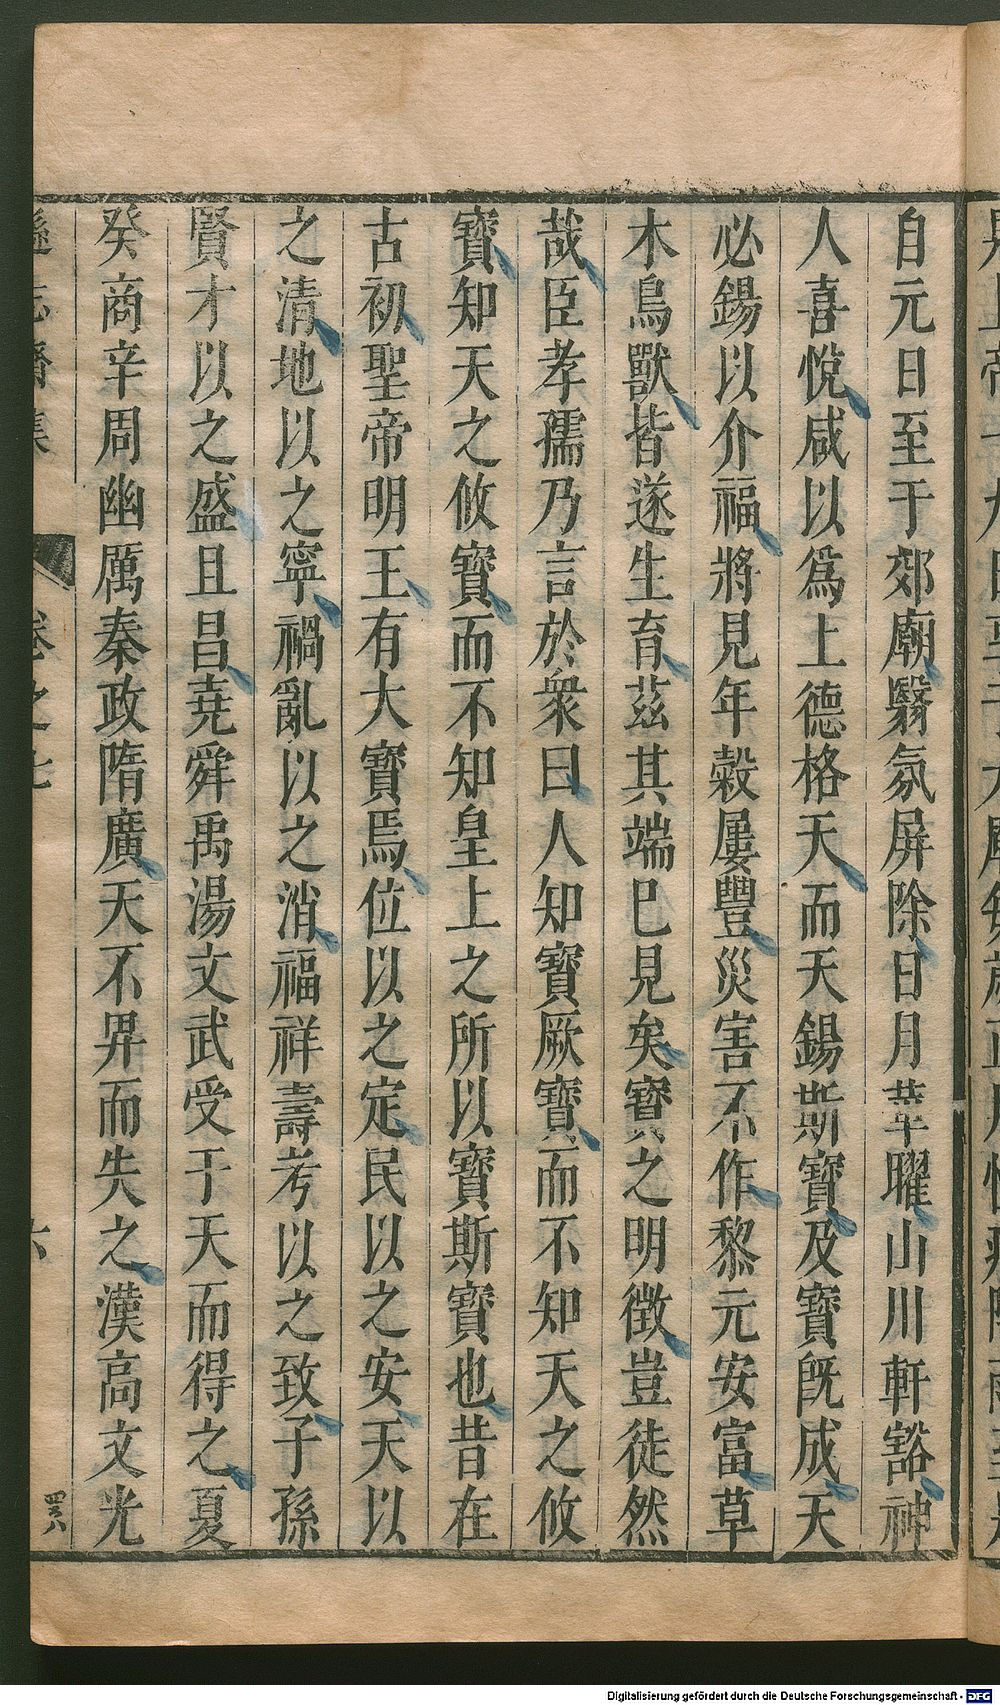 自元日至于郊廟翳氛屏除日月華曜山川軒豁神
人喜悅咸以爲上德格天而天錫斯寶及寶旣成天
必錫以介福將見年穀屢豐災害不作黎元安富草
木鳥獸皆遂生育茲其端巳見矣寶之明徵豈徒然
哉臣孝孺乃言於衆曰人知寶厥寶而不知天之攸
寶知天之攸寶而不知皇上之所以寶斯寶也昔在
古初聖帝明王有大寶焉位以之定民以之安天以
之清地以之寧禍亂以之消福祥壽考以之致子孫
賢才以之盛且昌堯舜禹湯文武受于天而得之夏
癸商辛周幽厲秦政隋廣天不畀而失之漢高文光
遜志齋集
卷之七
六
Digitalisierung gefördert durch die Deutsche Forschungsgemeinschaft - DFG